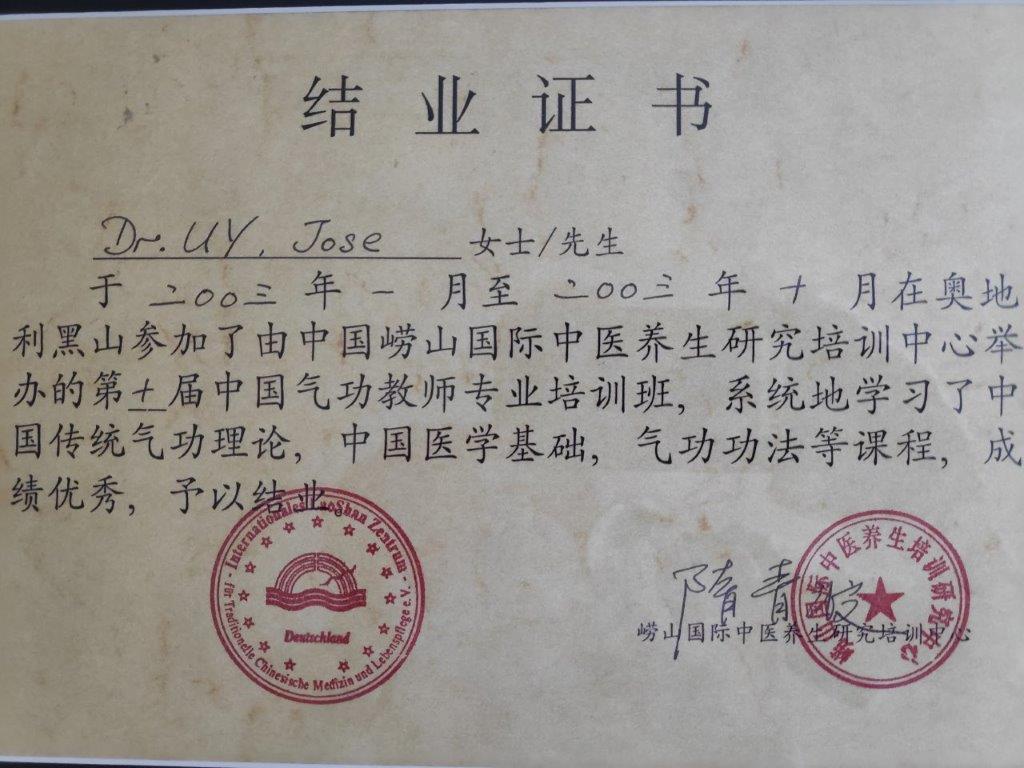 结业证书
Dr. UY, Jose 女士/先生
于 二〇〇三 年 一 月至 二〇〇三 年 十 月在奥地
利黑山参加了由中国崂山国际中医养生研究培训中心举
办的第十届中国气功教师专业培训班，系统地学习了中
国传统气功理论，中国医学基础，气功功法等课程，成
绩优秀，予以结业。
Internationales LaoShan Zentrum
für Traditionelle Chinesische Medizin und Lebenspflege e.V.
Deutschland
隋青
崂山国际中医养生研究培训中心
崂山国际中医养生培训研究中心